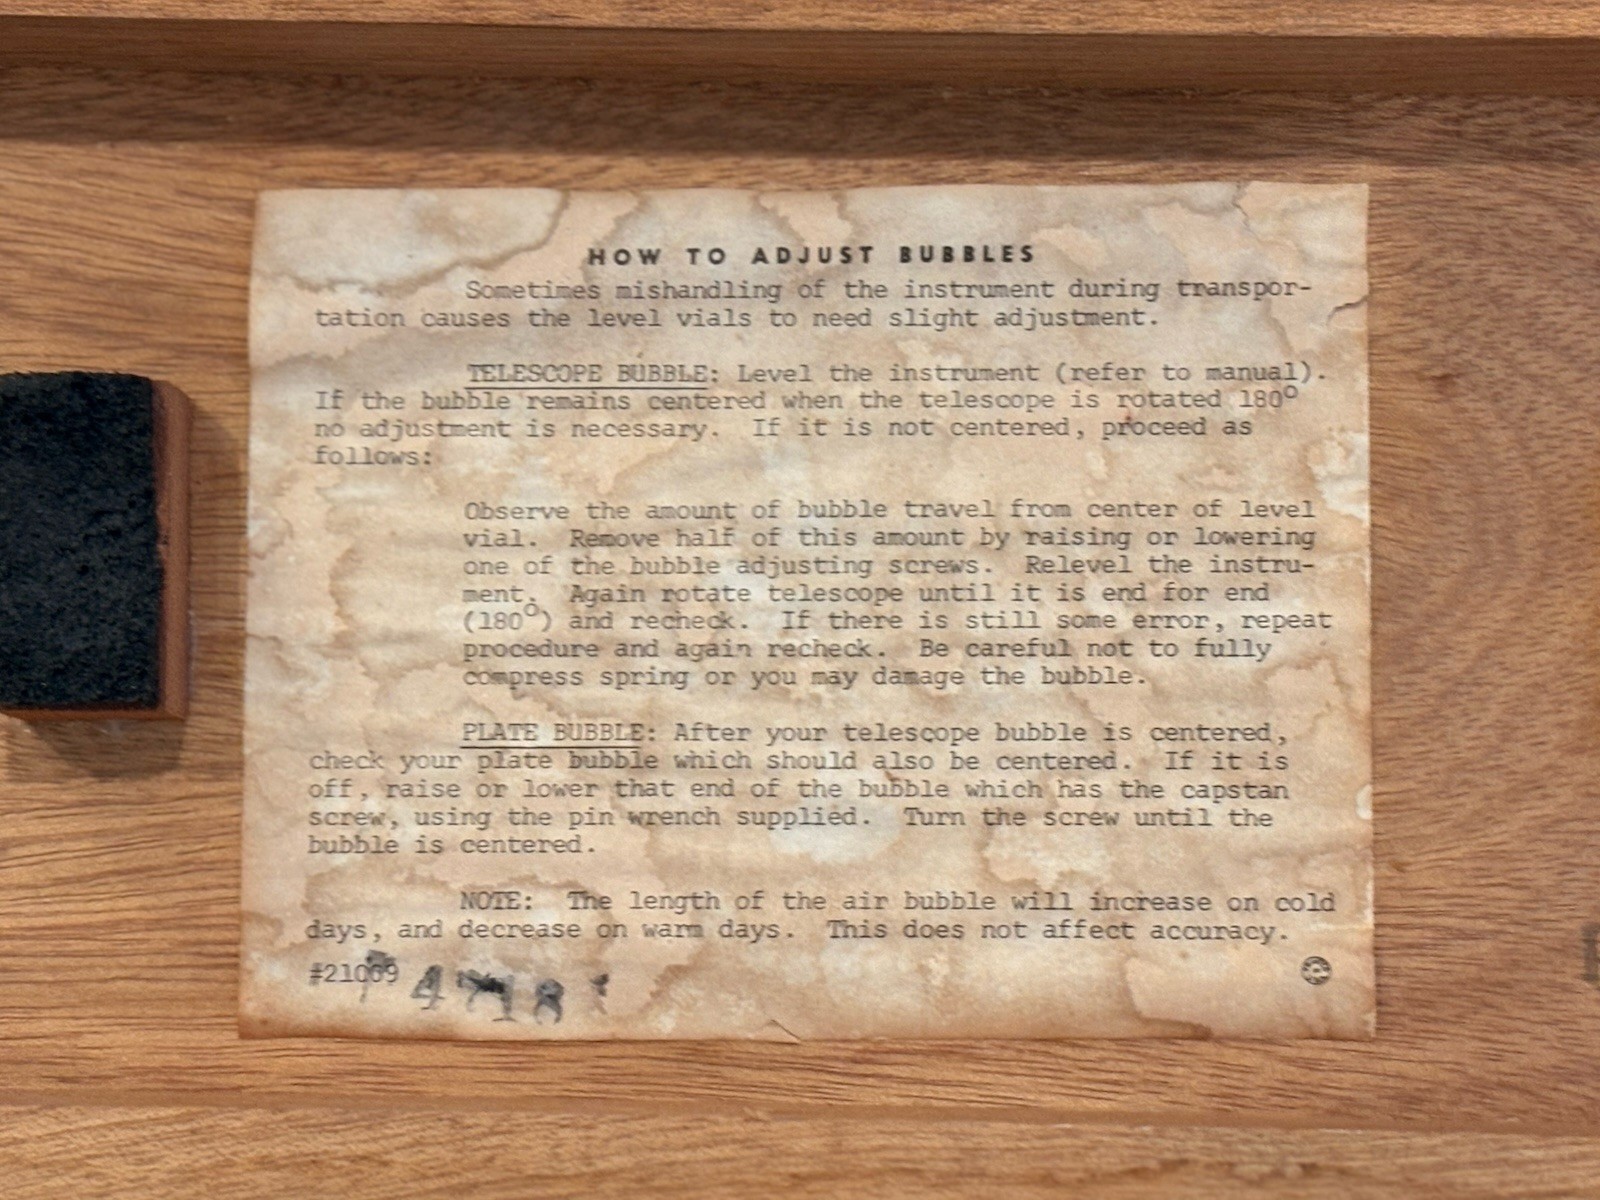 HOW TO ADJUST BUBBLES
Sometimes mishandling of the instrument during transpor-
tation causes the level vials to need slight adjustment.
TELESCOPE BUBBLE: Level the instrument (refer to manual).
If the bubble remains centered when the telescope is rotated 180°
no adjustment is necessary. If it is not centered, proceed as
follows:
Observe the amount of bubble travel from center of level
vial. Remove half of this amount by raising or lowering
one of the bubble adjusting screws. Relevel the instru-
ment. Again rotate telescope until it is end for end
(180°) and recheck. If there is still some error, repeat
procedure and again recheck. Be careful not to fully
compress spring or you may damage the bubble.
PLATE BUBBLE: After your telescope bubble is centered,
check your plate bubble which should also be centered. If it is
off, raise or lower that end of the bubble which has the capstan
screw, using the pin wrench supplied. Turn the screw until the
bubble is centered.
NOTE: The length of the air bubble will increase on cold
days, and decrease on warm days. This does not affect accuracy.
#21069